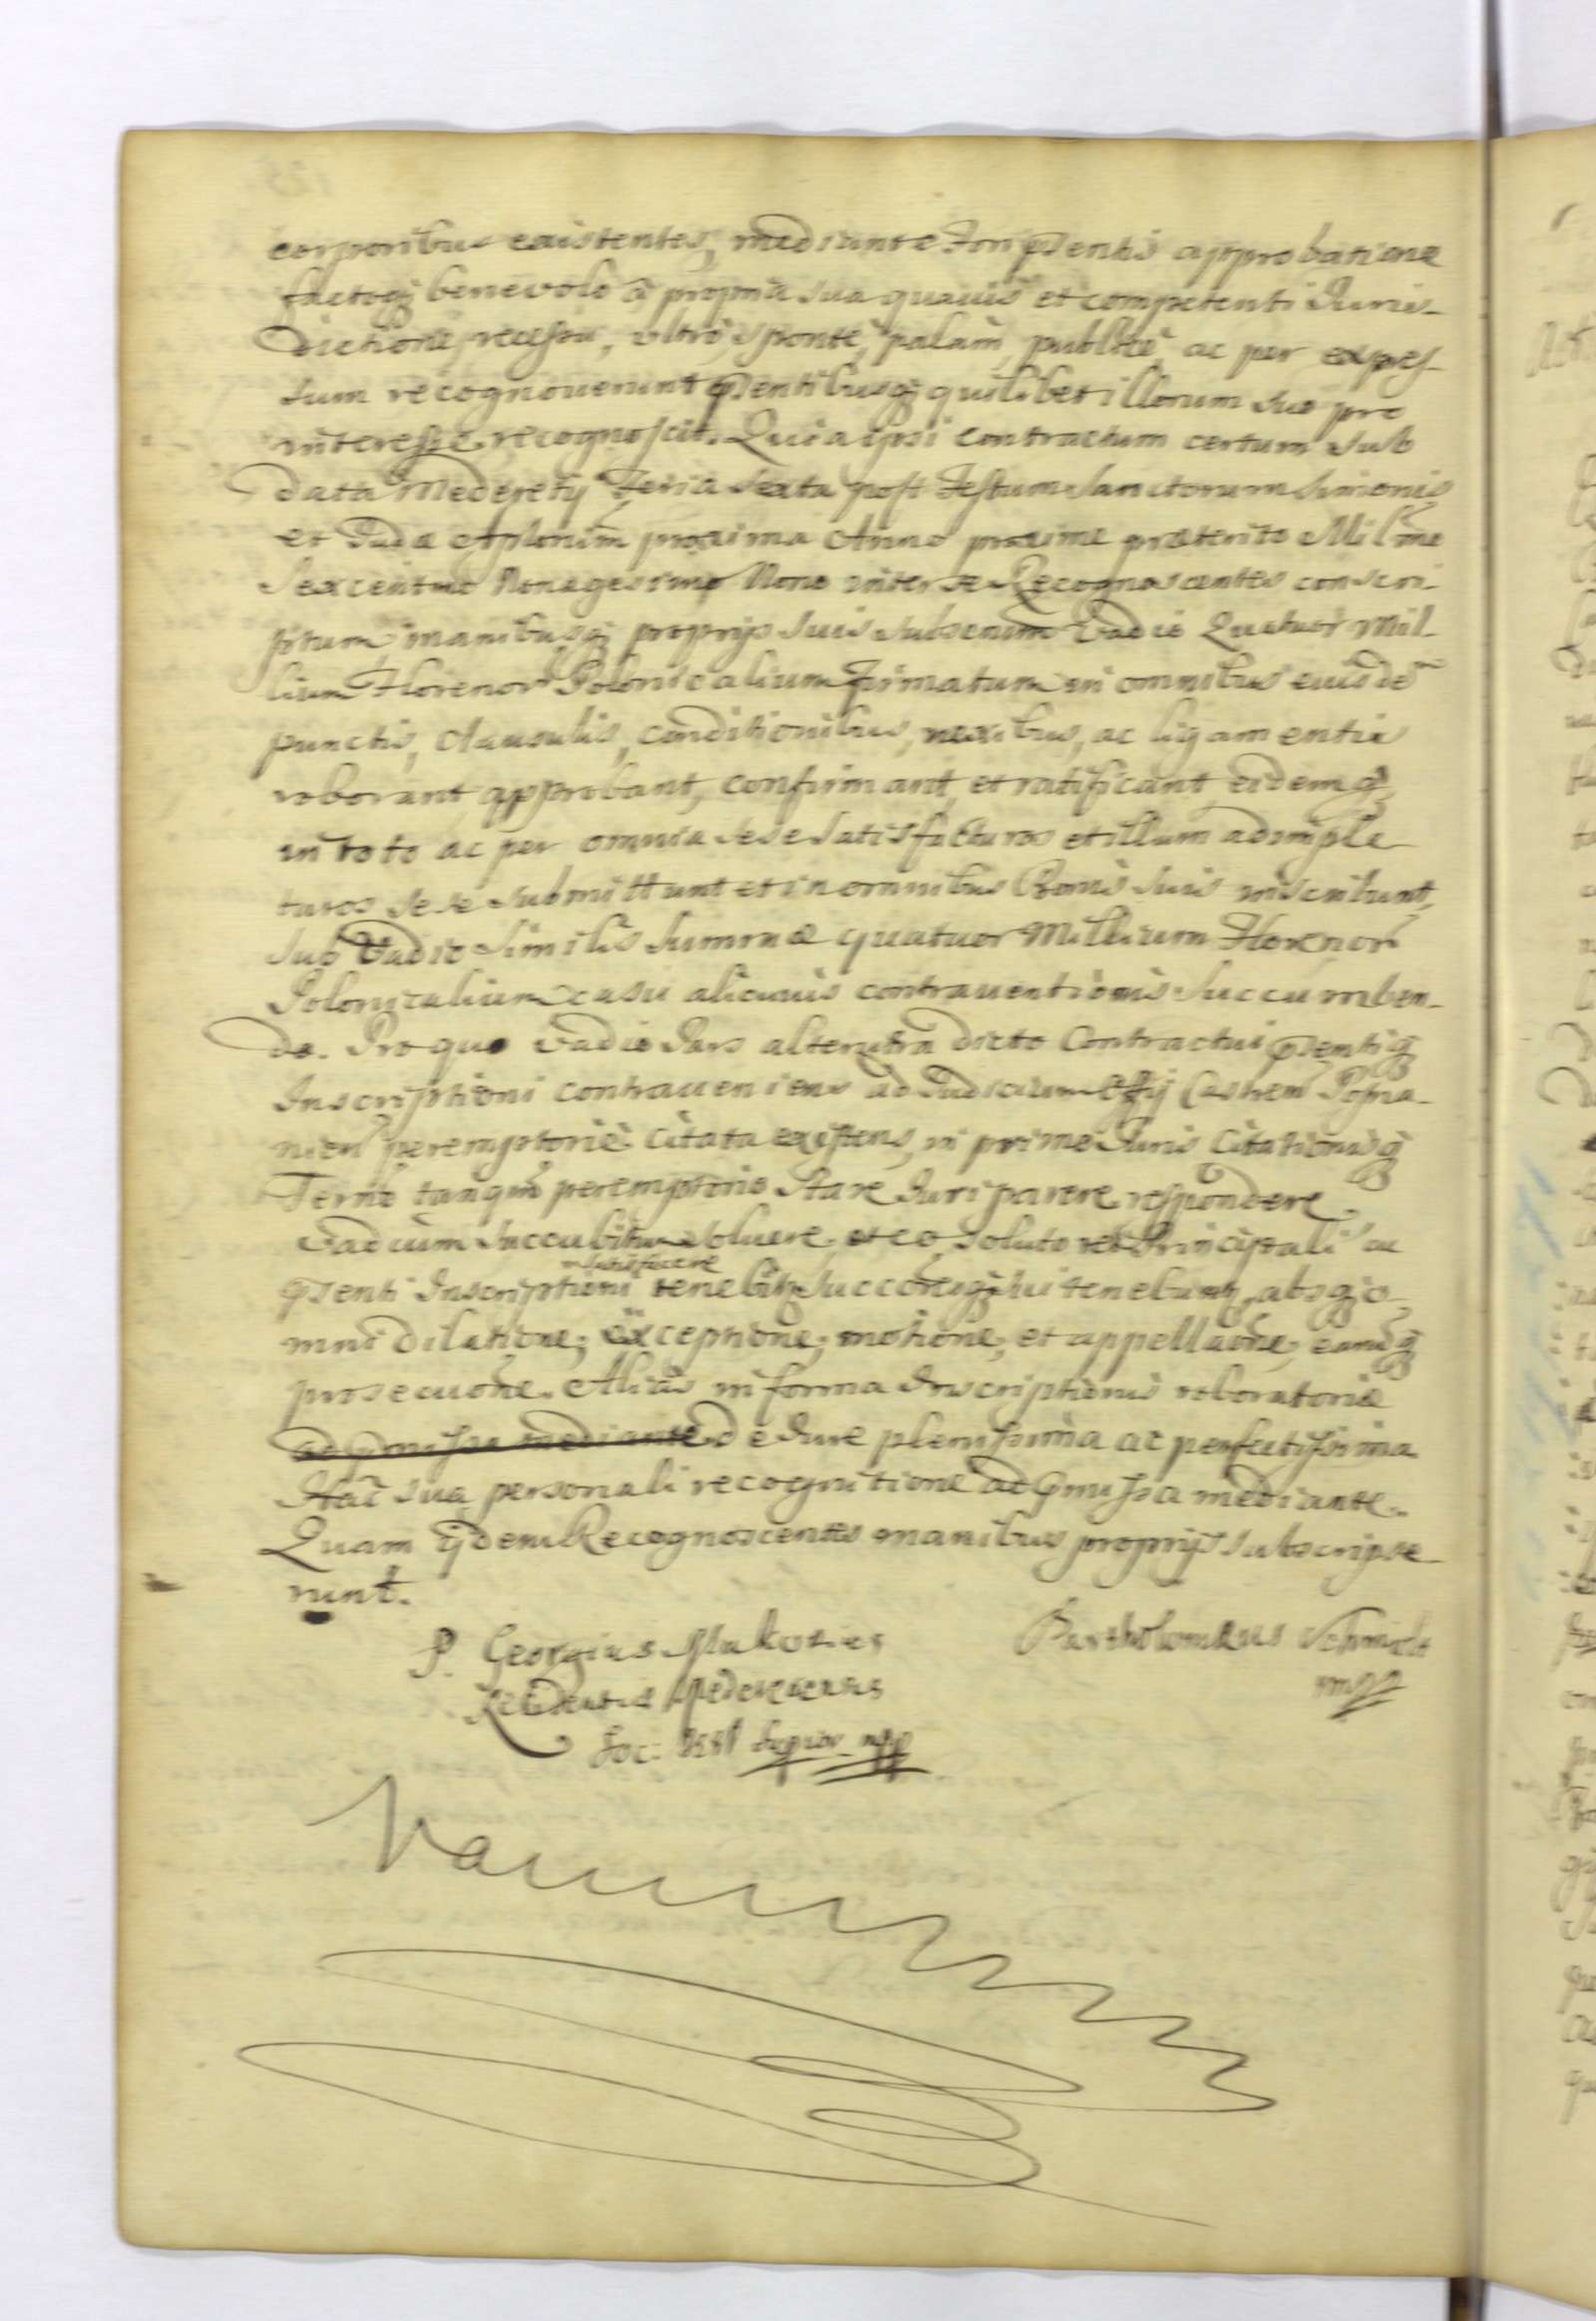 corporibus existentes, mediante Jon pñentis approbatione
factoq; benevolo à propria sua quavis et competenti Juris-
dictione recessu, ultrò, spontè, palàm, publicè ac per expres-
sum recognoverunt pñentibusq; quilibet illorum suo pro
interesse recognoscit. Quia ipsi contractum certum sub
data Mederecÿ Feria sexta post Festum Sanctorum Simonis
et Judæ Aplorum proxima Anno proxime præterito Mil̃mo
Sexcentmo Nonagesimo Nono inter se Recognoscentes conscri-
ptum manibusq; proprijs suis subscriptum Vadio Quatuor Mil-
lium Florenor Polonicalium firmatum in omnibus eiusdẽ
punctis, clausulis, conditionibus, nexibus, ac ligamentis
roborant, approbant, confirmant, et ratificant, eidemq;
in toto ac per omnia sese satisfacturos et illum adimple-
turos sese submittunt et in omnibus Bonis suis inscribunt,
sub Vadio similis summæ quatuor Millium Florenor
Polonicalium casu alicuius contraventionis succumben-
do. Pro quo vadio Pars alterutra dicto Contractui pñentiq;
Inscriptioni contraveniens ad Judicium Offÿ Castren Posna-
nien peremptoriè citata existens, in primo Juris Citationisq;
Termõ tanqm̃ peremptorio stare Juri parere respondere
Vadium succubitum solvere, et eo soluto vel Principali ac
satisfacere
pñenti Inscriptioni tenebitr Succoresq; sui tenebuntr, absq; o-
mni dilatione, exceptione, motione, et appellaõne, earumq;
prosecuõne. Aliàs in forma Inscriptionis roboratoriæ
ad pmissa mediante de Jure plenissima ac perfectissima
Hac sua personali recognitione ad pmissa mediante.
Quam ijdem Recognoscentes manibus proprijs subscripse-
runt.
P. Georgius Makowies
Bartholomæus Schmidt
mpp
Residentiæ Mederecensis
Soc: Jesu Superior mpp